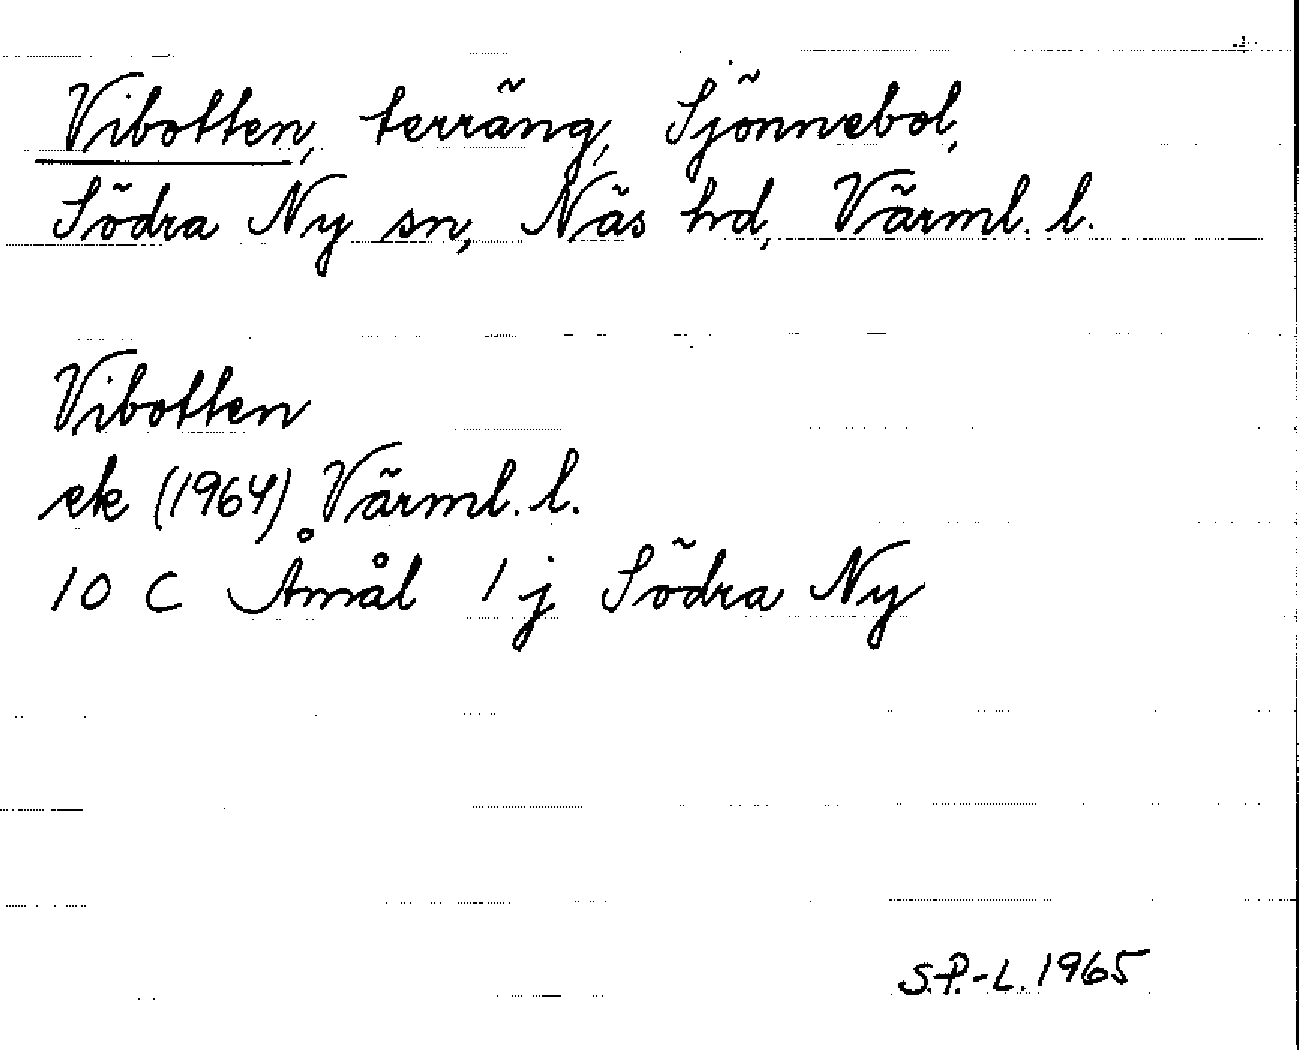 Vibotten, terräng, Sjönnebol,
Södra Ny sn, Näs hd, Värml. l.
Vibotten
ek (1964) Värml. l.
10 C Åmål 1 j Södra Ny
S.P.-L. 1965